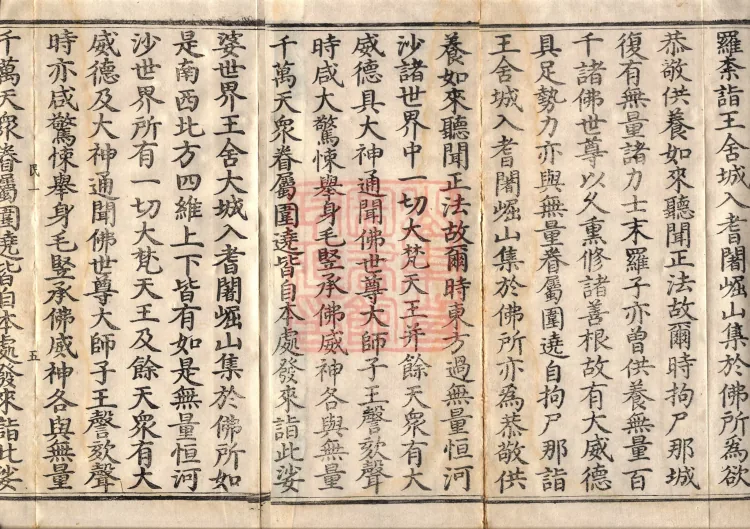 羅柰詣王舍城入耆闍崛山集於佛所為欲
恭敬供養如來聽聞正法故爾時拘尸那城
復有無量諸力士末羅子亦曾供養無量百
千諸佛世尊以久熏修諸善根故有大威德
具足勢力亦與無量眷屬圍遶自拘尸那詣
王舍城入耆闍崛山集於佛所亦為恭敬供
養如來聽聞正法故爾時東方過無量恒河
沙諸世界中一切大梵天王并餘天眾有大
威德具大神通聞佛世尊大師子王謦欬聲
時咸大驚悚舉身毛竪承佛威神各與無量
千萬天眾眷屬圍遶皆自本處發來詣此娑
婆世界王舍大城入耆闍崛山集於佛所如
是南西北方四維上下皆有如是無量恒河
沙世界所有一切大梵天王及餘天眾有大
威德及大神通聞佛世尊大師子王謦欬聲
時亦咸驚悚舉身毛竪承佛威神各與無量
民一 五
千萬天眾眷屬圍遶皆自本處發來詣此娑